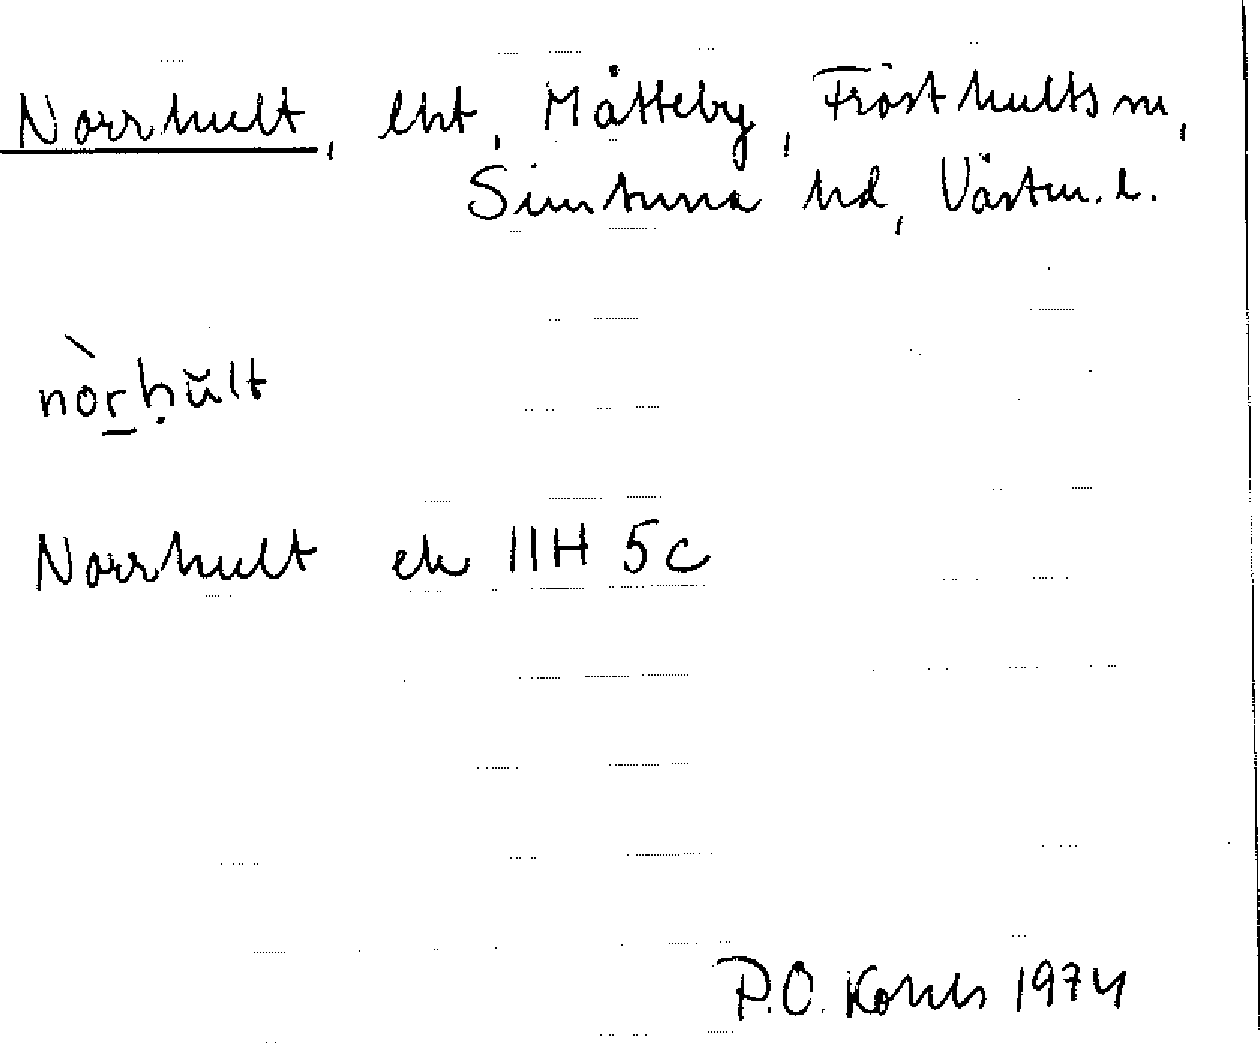 Norrhult, lht, Måtteby, Frösthults sn,
Simtuna hd, Västm. l.
nòrhŭlt
Norrhult ek 11H 5c
P.O. 1974